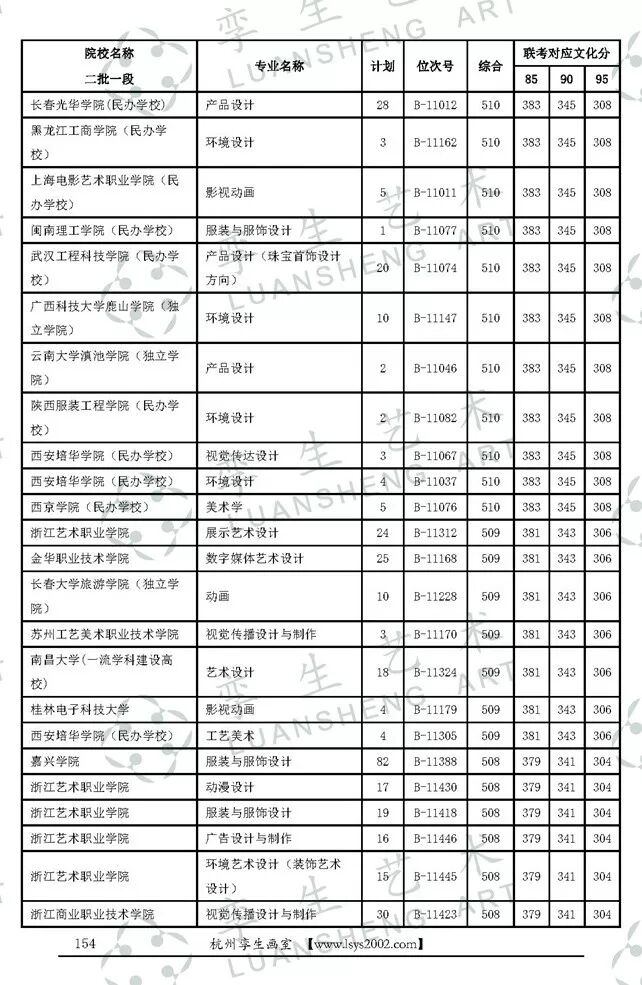 院校名称 专业名称 计划 位次号 综合 联考对应文化分
二批一段 85 90 95
长春光华学院(民办学校) 产品设计 28 B-11012 510 383 345 308
黑龙江工商学院（民办学
校） 环境设计 3 B-11162 510 383 345 308
上海电影艺术职业学院（民
办学校） 影视动画 5 B-11011 510 383 345 308
闽南理工学院（民办学校） 服装与服饰设计 1 B-11077 510 383 345 308
武汉工程科技学院（民办学 产品设计（珠宝首饰设计
校） 方向） 20 B-11074 510 383 345 308
广西科技大学鹿山学院（独
立学院） 环境设计 10 B-11147 510 383 345 308
云南大学滇池学院（独立学
院） 产品设计 2 B-11046 510 383 345 308
陕西服装工程学院（民办学
校） 环境设计 2 B-11082 510 383 345 308
西安培华学院（民办学校） 视觉传达设计 3 B-11067 510 383 345 308
西安培华学院（民办学校） 环境设计 4 B-11037 510 383 345 308
西京学院（民办学校） 美术学 5 B-11076 510 383 345 308
浙江艺术职业学院 展示艺术设计 24 B-11312 509 381 343 306
金华职业技术学院 数字媒体艺术设计 25 B-11168 509 381 343 306
长春大学旅游学院（独立学
院） 动画 10 B-11228 509 381 343 306
苏州工艺美术职业技术学院 视觉传播设计与制作 3 B-11170 509 381 343 306
南昌大学(一流学科建设高
校) 艺术设计 18 B-11324 509 381 343 306
桂林电子科技大学 影视动画 4 B-11179 509 381 343 306
西安培华学院（民办学校） 工艺美术 4 B-11305 509 381 343 306
嘉兴学院 服装与服饰设计 82 B-11388 508 379 341 304
浙江艺术职业学院 动漫设计 17 B-11430 508 379 341 304
浙江艺术职业学院 服装与服饰设计 19 B-11418 508 379 341 304
浙江艺术职业学院 广告设计与制作 16 B-11446 508 379 341 304
浙江艺术职业学院 环境艺术设计（装饰艺术
设计） 15 B-11445 508 379 341 304
浙江商业职业技术学院 视觉传播设计与制作 30 B-11423 508 379 341 304
154 杭州孪生画室 【www.lsys2002.com】
孪生艺术
LUANSHENG ART